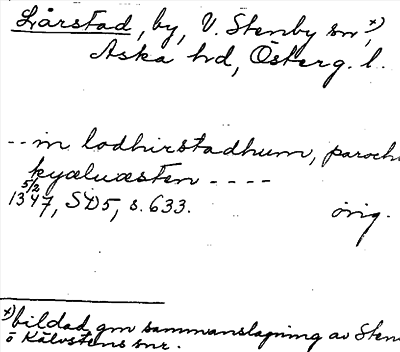 Lårstad, by, V. Stenby sn, x)
Aska hd, Österg. l.
-- in lodhirstadhum, paroch
kyælwæsten ----
5/2
1347, SD5, s. 633. orig.
x) bildad gm sammanslagning av Sten
o Kälvstens snr.